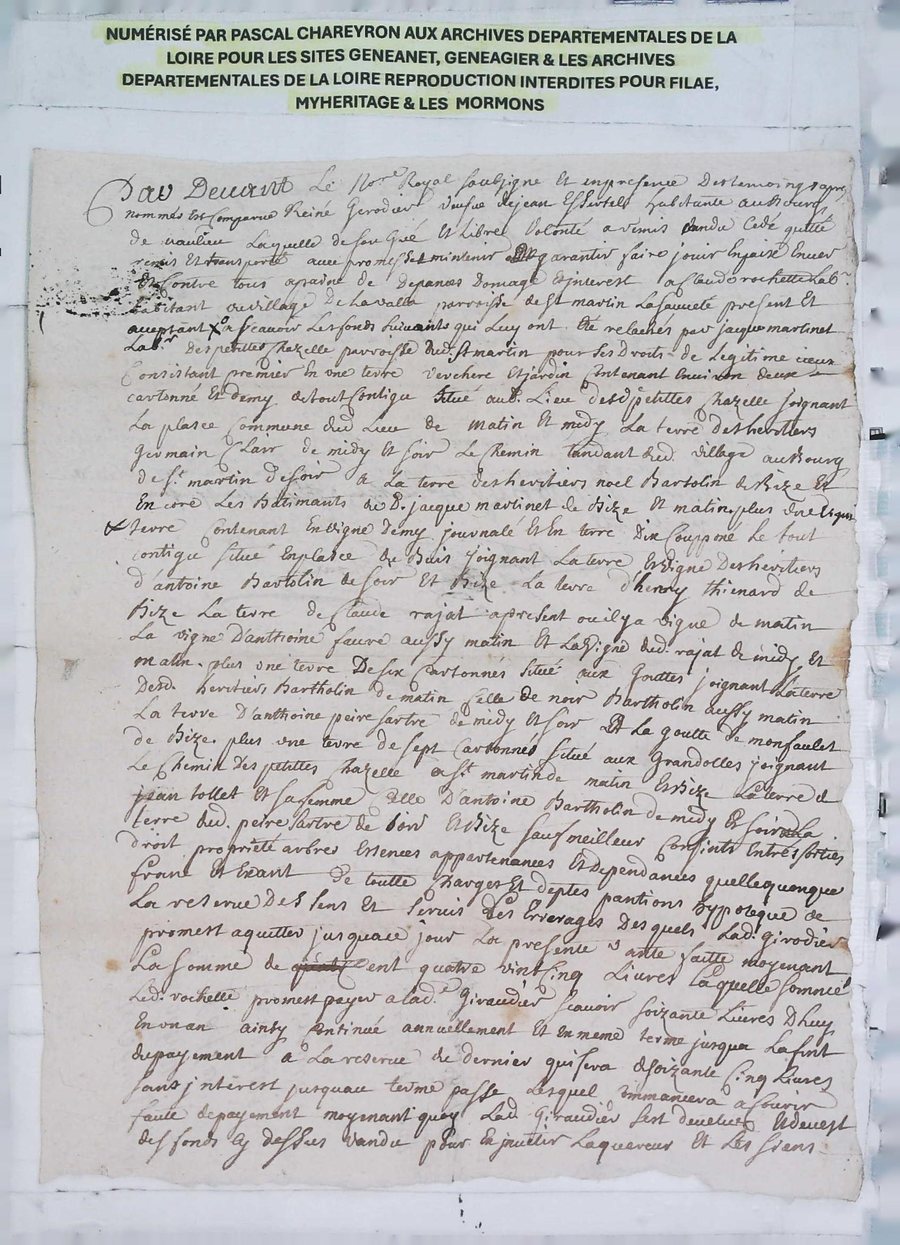 NUMÉRISÉ PAR PASCAL CHAREYRON AUX ARCHIVES DEPARTEMENTALES DE LA
LOIRE POUR LES SITES GENEANET, GENEAGIER & LES ARCHIVES
DEPARTEMENTALES DE LA LOIRE REPRODUCTION INTERDITES POUR FILAE,
MYHERITAGE & LES MORMONS
Par Devant Le Nore Royal soubsigne Et en presence Des temoings apres
nommés Est Comparue Reiné Girodier veufve de jean Essertels habitante au Bourg
de vaulieu Laquelle de son Gué Et Libre volonté a remis vandu Cedé quitté
remis Et transporté avec promesse maintenir garantir faire jouir Envers
Et Contre tous a paine de depances Domage Et interest a Claude rochette Labr
habitant au village De La valla parroisse de st martin La sauveté present Et
aceptant a scauoir Les fonds suivants qui Luy ont Été relachés par jacque martinet
Labr Des petittes Chazelle parroisse dud. st martin pour ses Droits de Legitime
Consistant premier En une terre verchere Et jardin Contenant Environ deux
cartonné Et demy de tout Contigu situé aud. Lieu desd petittes Chazelle joignant
La place Commune dud Lieu de matin Et midy La terre des heritiers
Germain Clair de midy Et soir Le Chemin tandant dud. village au Bourg
de st. martin de soir La terre des heritiers noel Bartolin de Bize Et
Encore Les Batimants du D. jacque martinet de Bize Et matin plus une vigne
terre Contenant En vigne demy journalé Et En terre Dix Couppone Le tout
contigu situé En place du Buis joignant La terre Et vigne Des heritiers
d'antoine Bartolin de soir Et Bize La terre d'henry thienard de
Bize La terre de Claude rajat apresent ou il y a vigne de matin
La vigne D'anthoine faure aussy matin Et La vigne dud. rajat de midy Et
matin. plus une terre De six Cartonnés situé aux Gouttes joignant La terre
Desd. heritiers Bartholin de matin Celle de noir Bartholin aussy matin
La terre D'anthoine peire sartre de midy Et soir Et La goutte de monfaulet
de Bize. plus une terre de sept Cartonnés situé aux Grandolles joignant
Le Chemin Des petittes Chazelle a st. martin de matin Et Bize La terre de
jean tollet Et sa femme Celle D'antoine Bartholin de midy Et soir La
terre dud. peire sartre de soir Et Bize sauf meilleur Confints Entrés sorties
droit propriété arbres Existences appartenances Et Dependances quellequonque
franc Et Exant De toutte Charges Et deptes pantions hypoteque de
La reserve Des sens Et servis Des Errerages Desquels Lad. girodier
promest aquitter jusquace jour La presente vante faitte moyenant
La somme de Cent quatre vint Cinq Livres Laquelle somme
Led. rochette promest payer a Lad.e Giraudier scauoir soizante Livres D'huy
En un an ainsy Continué annuellement Et en meme terme jusqua La fint
du payement a La reserve du dernier qui sera de soizante Cinq Livres
sans jnterest jusquace terme passe Lesquel Commancera a Courir
faute de payement moyenant quoy Lad. Giraudier s'est devetue Et devest
des fonds Cy dessus vandu pour En jnvetir Laquereur Et Les siens